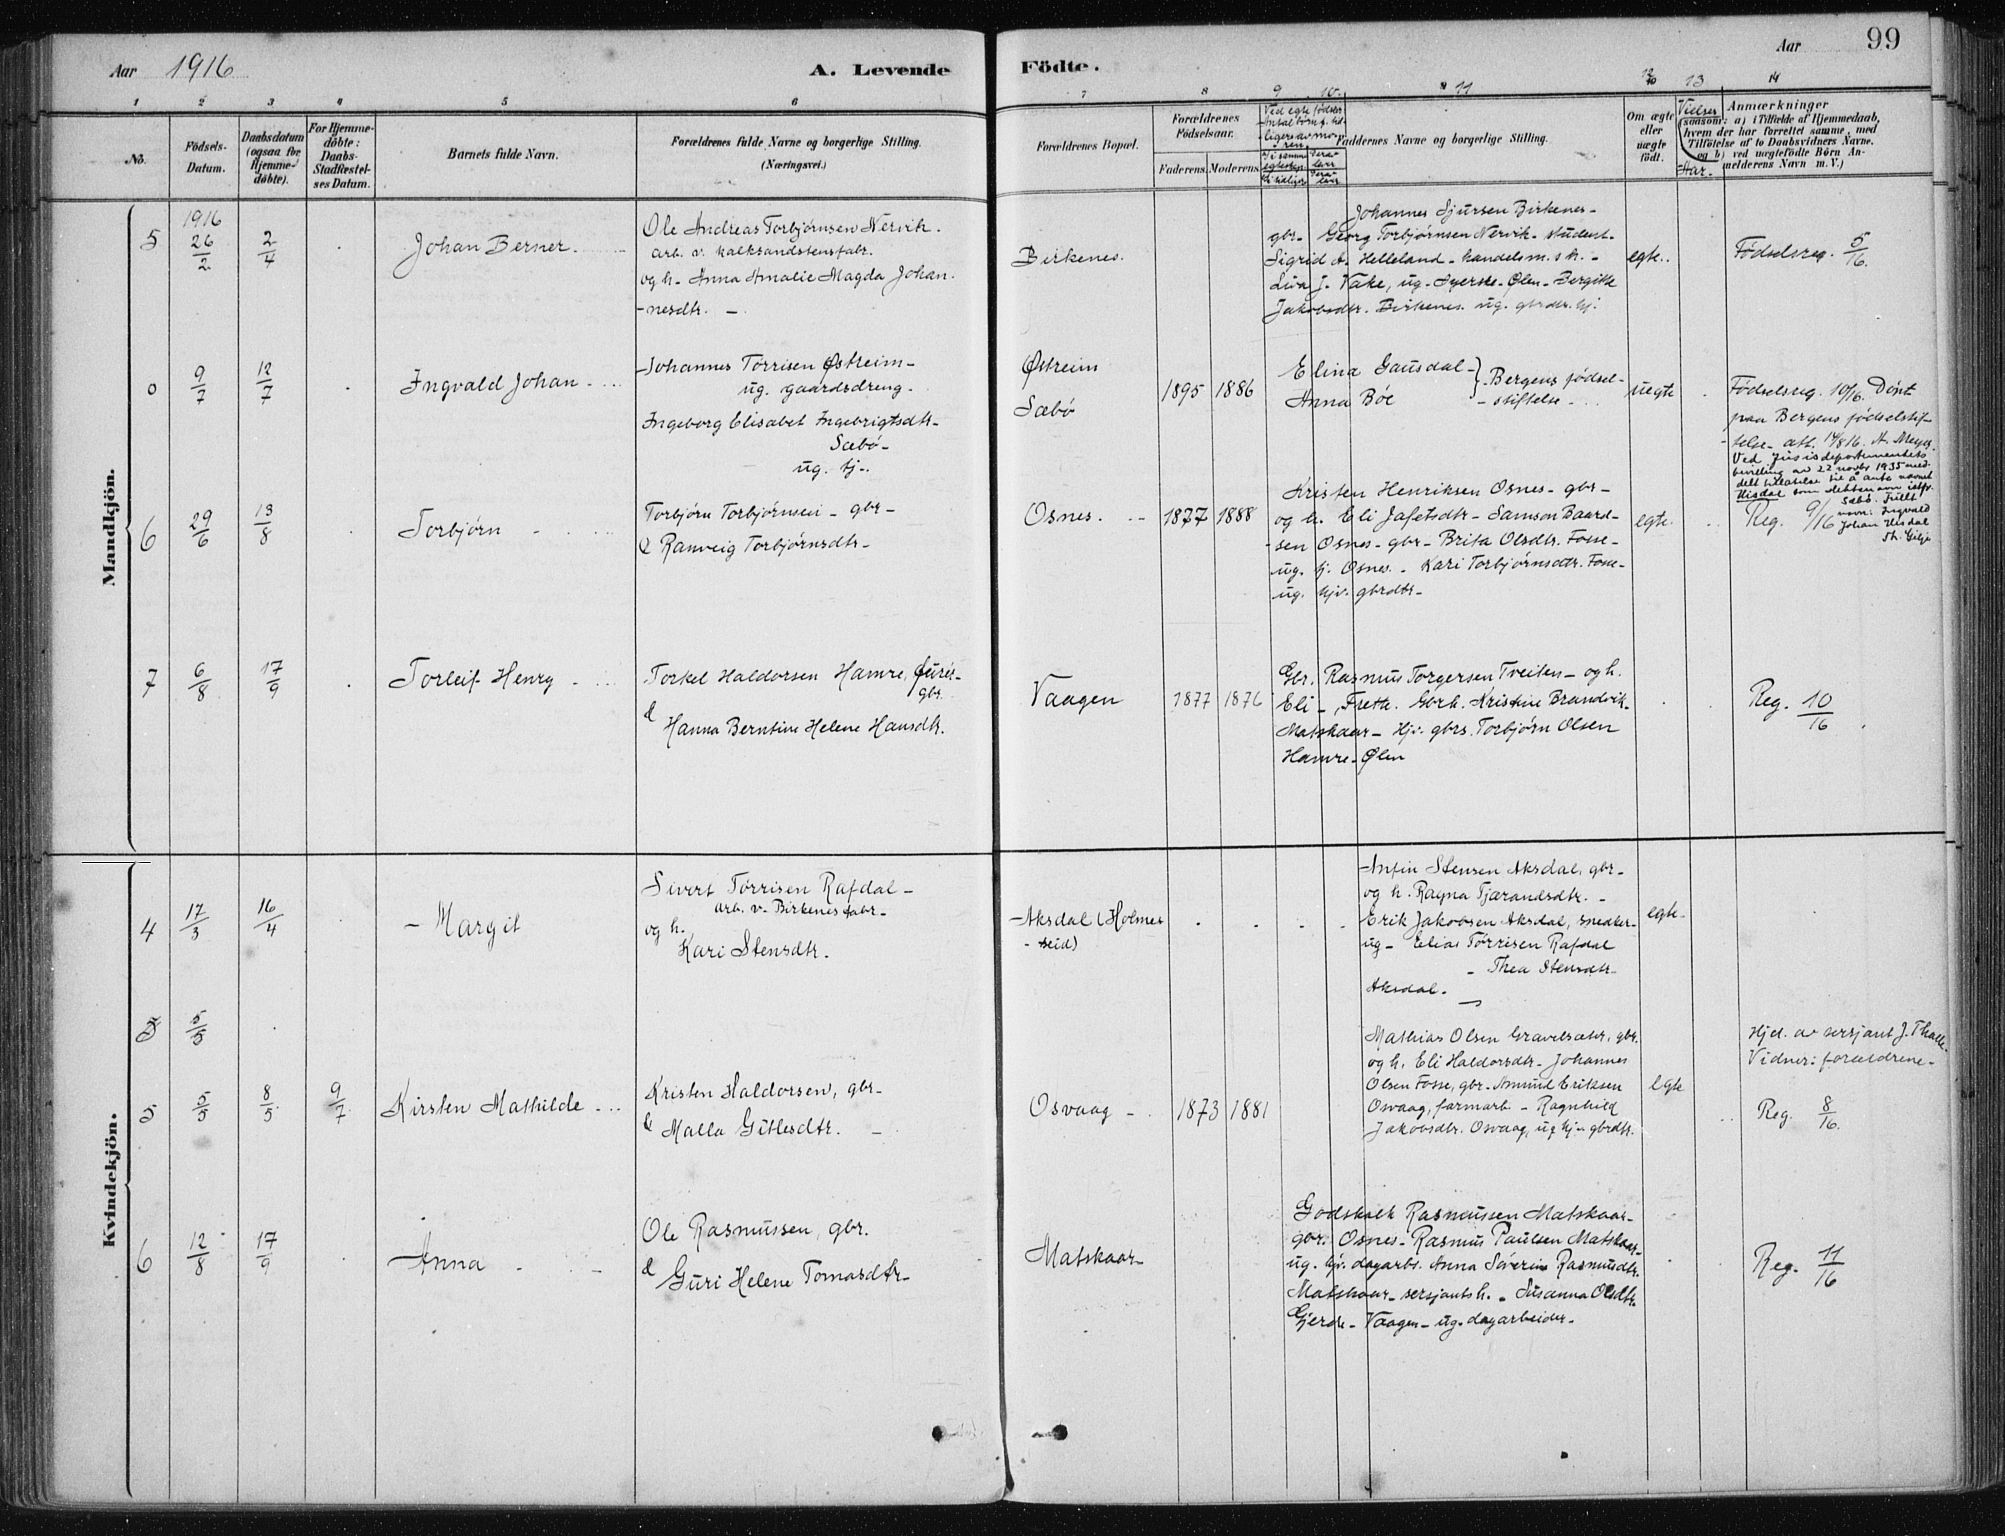 Aar 1916
A. Levende
Födte.
Aar
99
1 2 3 4 5 6 7 8 9 10. 11 12 13 14
No.
Födsels-
Datum.
Daabsdatum
(ogsaa for
Hjemme-
döbte).
For Hjemme-
döbte:
Daabs-
Stadfæstel-
ses Datum.
Barnets fulde Navn.
Forældrenes fulde Navne og borgerlige Stilling.
(Næringsvei.)
Forældrenes Bopæl.
Forældrenes
Födselsaar.
Faderens.
Moderens.
Ved egte fødsler
Antal børn f. tid-
ligere av mo-
ren.
Faddernes Navne og borgerlige Stilling.
Om ægte
eller
uægte
födt.
Vielses
Aar.
Anmærkninger
saasom: a) i Tilfælde af Hjemmedaab,
hvem der har forrettet samme, med
Tilföielse af to Daabsvidners Navne.
og b) ved uægtefödte Börn An-
melderens Navn m. V.)
Mandkjön.
5
1916
26/2
2/4
Johan Berner.
Ole Andreas Torbjørnsen Nervik.
arb. v. kalksandstensfabr.
og h. Anna Amalie Magda Johan-
nesdtr. -
Birkenes.
Johannes Sjursen Birkenes-
gbr- Georg Torbjørnsen Nervik- student-
Sigrid A. Helleland- handelsm.s h.-
Liva J. Vake, ug. syerske- Ølen- Bergitte
Jakobsdtr. Birkenes. ug. gbrdtr. hj.
egte.
Födselsreg. 5/16.
0
9/7
12/7
Ingvald Johan
Johannes Tørrisen Østreim-
ug. gaardsdreng.
Ingeborg Elisabet Ingebrigtsdtr-
Sæbø-
ug. tj-.
Østreim
Sæbø
1895 1886
Elina Gausdal-
Anna Böe
Bergens födsel-
stiftelse
uegte
Födselsreg. 10/16. Döpt
paa Bergens födselstif-
telse- att. 14/8 16. A. Meyer.
Ved Jusisdepartementets
bevilling av 22 novbr 1935 med-
delt tillatelse til å anta navnet
Hisdal som slektsnavn istf.
Sæbö. Fullt
navn: Ingvald
Johan Hisdal
6
29/6
13/8
Torbjørn
Torbjørn Torbjørnsen- gbr-
& Ranveig Torbjørnsdtr-
Osnes.
1877 1888
Kristen Henriksen Osnes- gbr-
og h. Eli Jafetsdtr- Samson Baard-
sen Osnes- gbr- Brita Olsdtr. Fosse-
ug. tj. Osnes.- Kari Torbjørnsdtr. Fosse-
ug. hjv. gbrdtr-
egte.
Reg. 9/16
7
6/8
17/9
Torleif Henry
Torkel Haldorsen Hamre,
gbr.
& Hanna Berntine Helene Hansdtr.
Vaagen
1877 1876
Gbr. Rasmus Torgersen Tveiten- og h.
Eli-, Frette. Gbrh. Kristine Brandvik-
Matskaar- Hjv. gbrs. Torbjørn Olsen
Hamre- Ølen
Reg. 10/16
Kvindekjön.
4
17/3
16/4
- Margit
Sivert Tørrisen Rafdal-
arb. v. Birkenes fabr-
og h.
Kari Stensdtr.
Aksdal (Holmes
- seid)
Anfin Stensen Aksdal, gbr-
og h. Ragna Tjærandsdtr. -
Erik Jakobsen Aksdal, snedker-
ug- Elias Tørrisen Rafdal
- Thea Stensdtr-
Aksdal.-
egte-
5/5
5
5/5
8/5
9/7
Kirsten Mathilde
Kristen Haldorsen, gbr-
& Malla Gitlesdtr. -
Osvaag
1873 1881
Mathias Olsen Gravelsæter, gbr.
og h. Eli Haldorsdtr- Johannes
Olsen Fosse, gbr- Amund Eriksen
Osvaag, farmarb. - Ragnhild
Jakobsdtr. Osvaag, ug hjv gbrdtr.
egte
Hjd. av sersjant J. Thalle.
Vidner: forældrene-
Reg. 8/16.
6
12/8
17/9
Anna
Ole Rasmussen, gbr.
& Guri Helene Tomasdtr-
Matskaar-
Godskalk Rasmussen Matskaar-
gbr. Osnes- Rasmus Paulsen Matskaar-
ug. hjv. dagarb. Anna Severine Rasmusdtr.
Matskaar- sersjants h. - Susanna Olsdtr.
Gjerde- Vaagen- ug. dagarbeider-
Reg. 11/16